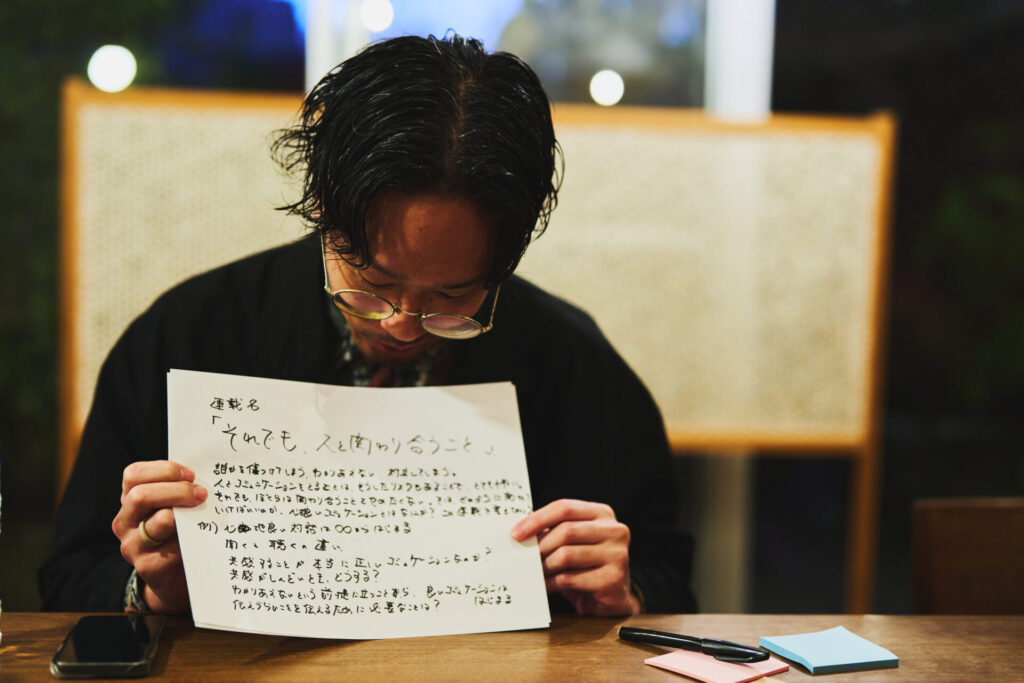 連載名
「それでも、人と関わり合うこと」
誰かを傷つけてしまう、わかりあえない、対立してしまう。
人とコミュニケーションをとることは、そうしたリスクもあることで、とても怖い。
それでも、ぼくらは関わり合うことをやめたくない。では、どのように関わって
いけばいいのか、心地いいコミュニケーションとはなにか？この連載で考えて
例）心地良い対話は〇〇からはじまる
聞くと聴くの違い
共感することが本当に正しいコミュニケーションなのか？
共感がしんどいとき、どうする？
わかりあえないという前提に立つことから、良いコミュニケーションは
はじまる
伝えづらいことを伝えるために必要なことは？